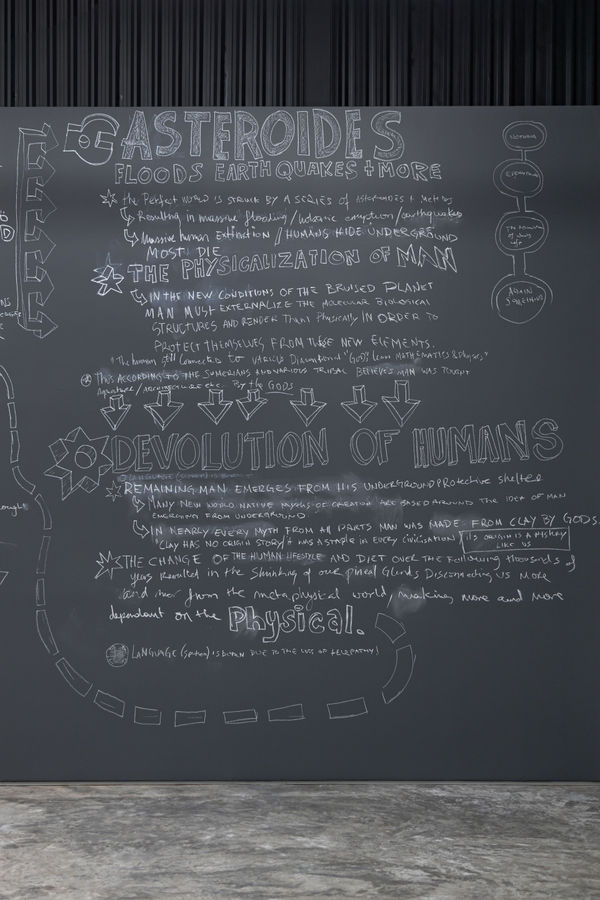 ASTEROIDES
FLOODS EARTHQUAKES + MORE
the Perfect World is struck by a series of Asteroides +
Resulting in massive flooding / volcanic eruption / earthquakes
Massive human Extinction / HUMANS HIDE UNDERGROUND
MOST DIE
THE PHYSICALIZATION OF MAN
IN THE NEW CONDITIONS OF THE BRUISED PLANET
MAN MUST EXTERNALIZE THE MOLECULAR BIOLOGICAL
STRUCTURES AND RENDER THEM PHYSICALLY IN ORDER TO
PROTECT THEMSELVES FROM THESE NEW ELEMENTS.
"The human still connected to various Dimentional "GODS" learn MATHEMATICS & Physics,"
THIS ACCORDING TO THE SUMERIANS AND VARIOUS TRIBAL BELIEVES MAN WAS TAUGHT
/ARCHITECTURE etc. By the GODS
DEVOLUTION OF HUMANS
REMAINING MAN EMERGES FROM HIS UNDERGROUND PROTECTIVE SHELTER
MANY NEW WORLD NATIVE MYTHS OF CREATION ARE BASED AROUND THE IDEA OF MAN
EMERGING FROM UNDERGROUND
IN NEARLY EVERY MYTH FROM ALL PARTS MAN WAS MADE FROM CLAY BY GODS.
"CLAY HAS NO ORIGIN STORY, IT WAS A STAPLE IN EVERY CIVILISATION" ITS ORIGIN IS A MYSTERY
LIKE US
THE CHANGE OF THE HUMAN LIFESTYLE AND DIET OVER THE Following thousands of
years Resulted in the Shrinking of our pineal Glands Disconnecting US MORE
and more from the metaphysical world, making more and more
dependant on the Physical.
LANGUAGE (spoken) IS BORN DUE TO THE LOSS OF TELEPATHY!
NOTHING
EVERYTHING
AGAIN
SOMETHING